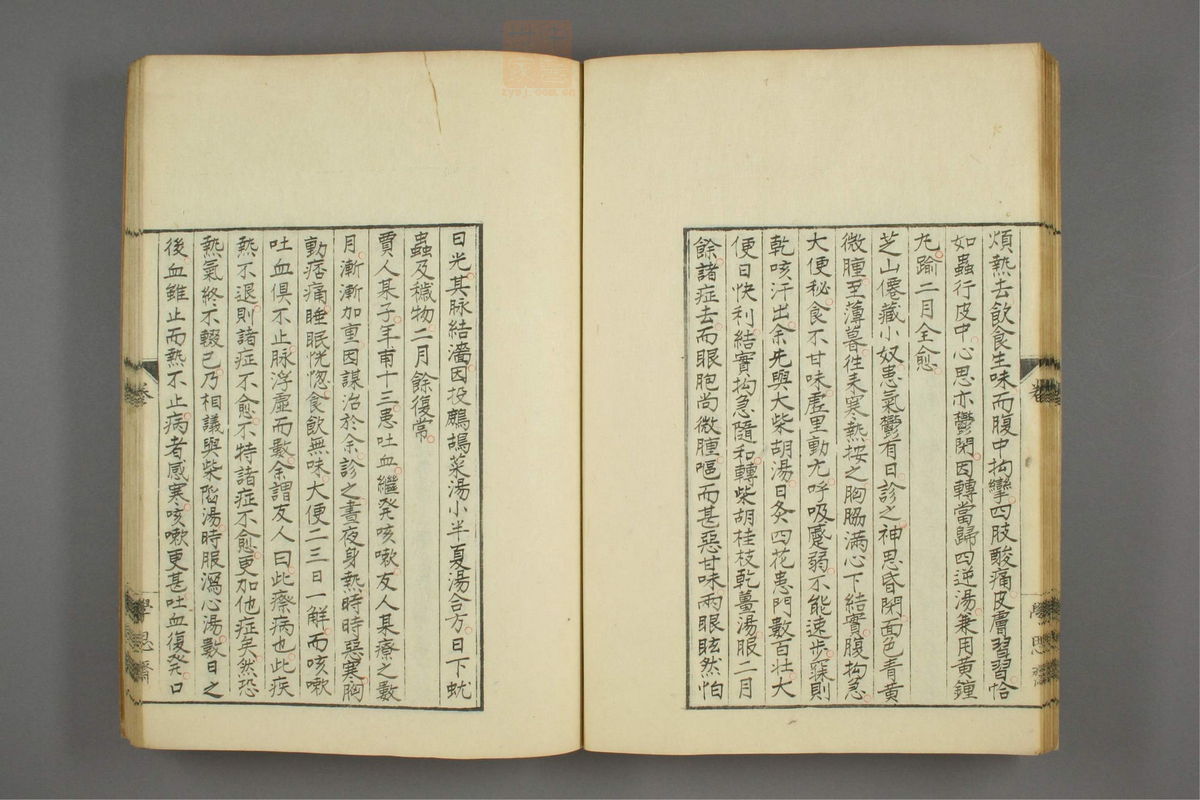 煩熱去飲食生味而腹中拘攣四肢酸痛皮膚習習恰
如蟲行皮中心思亦鬱閉因轉當歸四逆湯兼用黃鐘
丸踰二月全愈
芝山僊藏小奴患氣鬱有日診之神思昏閉面色青黃
微腫至薄暮往来寒熱按之胸脇滿心下結實腹拘急
大便秘食不甘味虛里動尢呼吸憂弱不能速步寐則
乾咳汗出余先與大柴胡湯日灸四花患門數百壮大
便日快利結實拘急隨和轉柴胡桂枝乾薑湯服二月
餘諸症去而眼胞尚微腫嘔而甚惡甘味兩眼眩然怕
日光其脉結濇因投鷓鴣菜湯小半夏湯合方日下蚘
蟲及穢物二月餘復常
賈人某子年甫十三患吐血繼発咳嗽友人某療之數
月漸漸加重因謀治於余診之晝夜身熱時時惡寒胸
動痞痛睡眠恍惚食飲無味大便二三日一解而咳嗽
吐血俱不止脉浮虛而數余謂友人曰此瘵病也此疾
熱不退則諸症不愈不特諸症不愈更加他症矣然恐
熱氣終不輟已乃相議與柴陷湯時服瀉心湯數日之
後血雖止而熱不止病者感寒咳嗽更甚吐血復発口
卷
學思齋
卷
學思齋